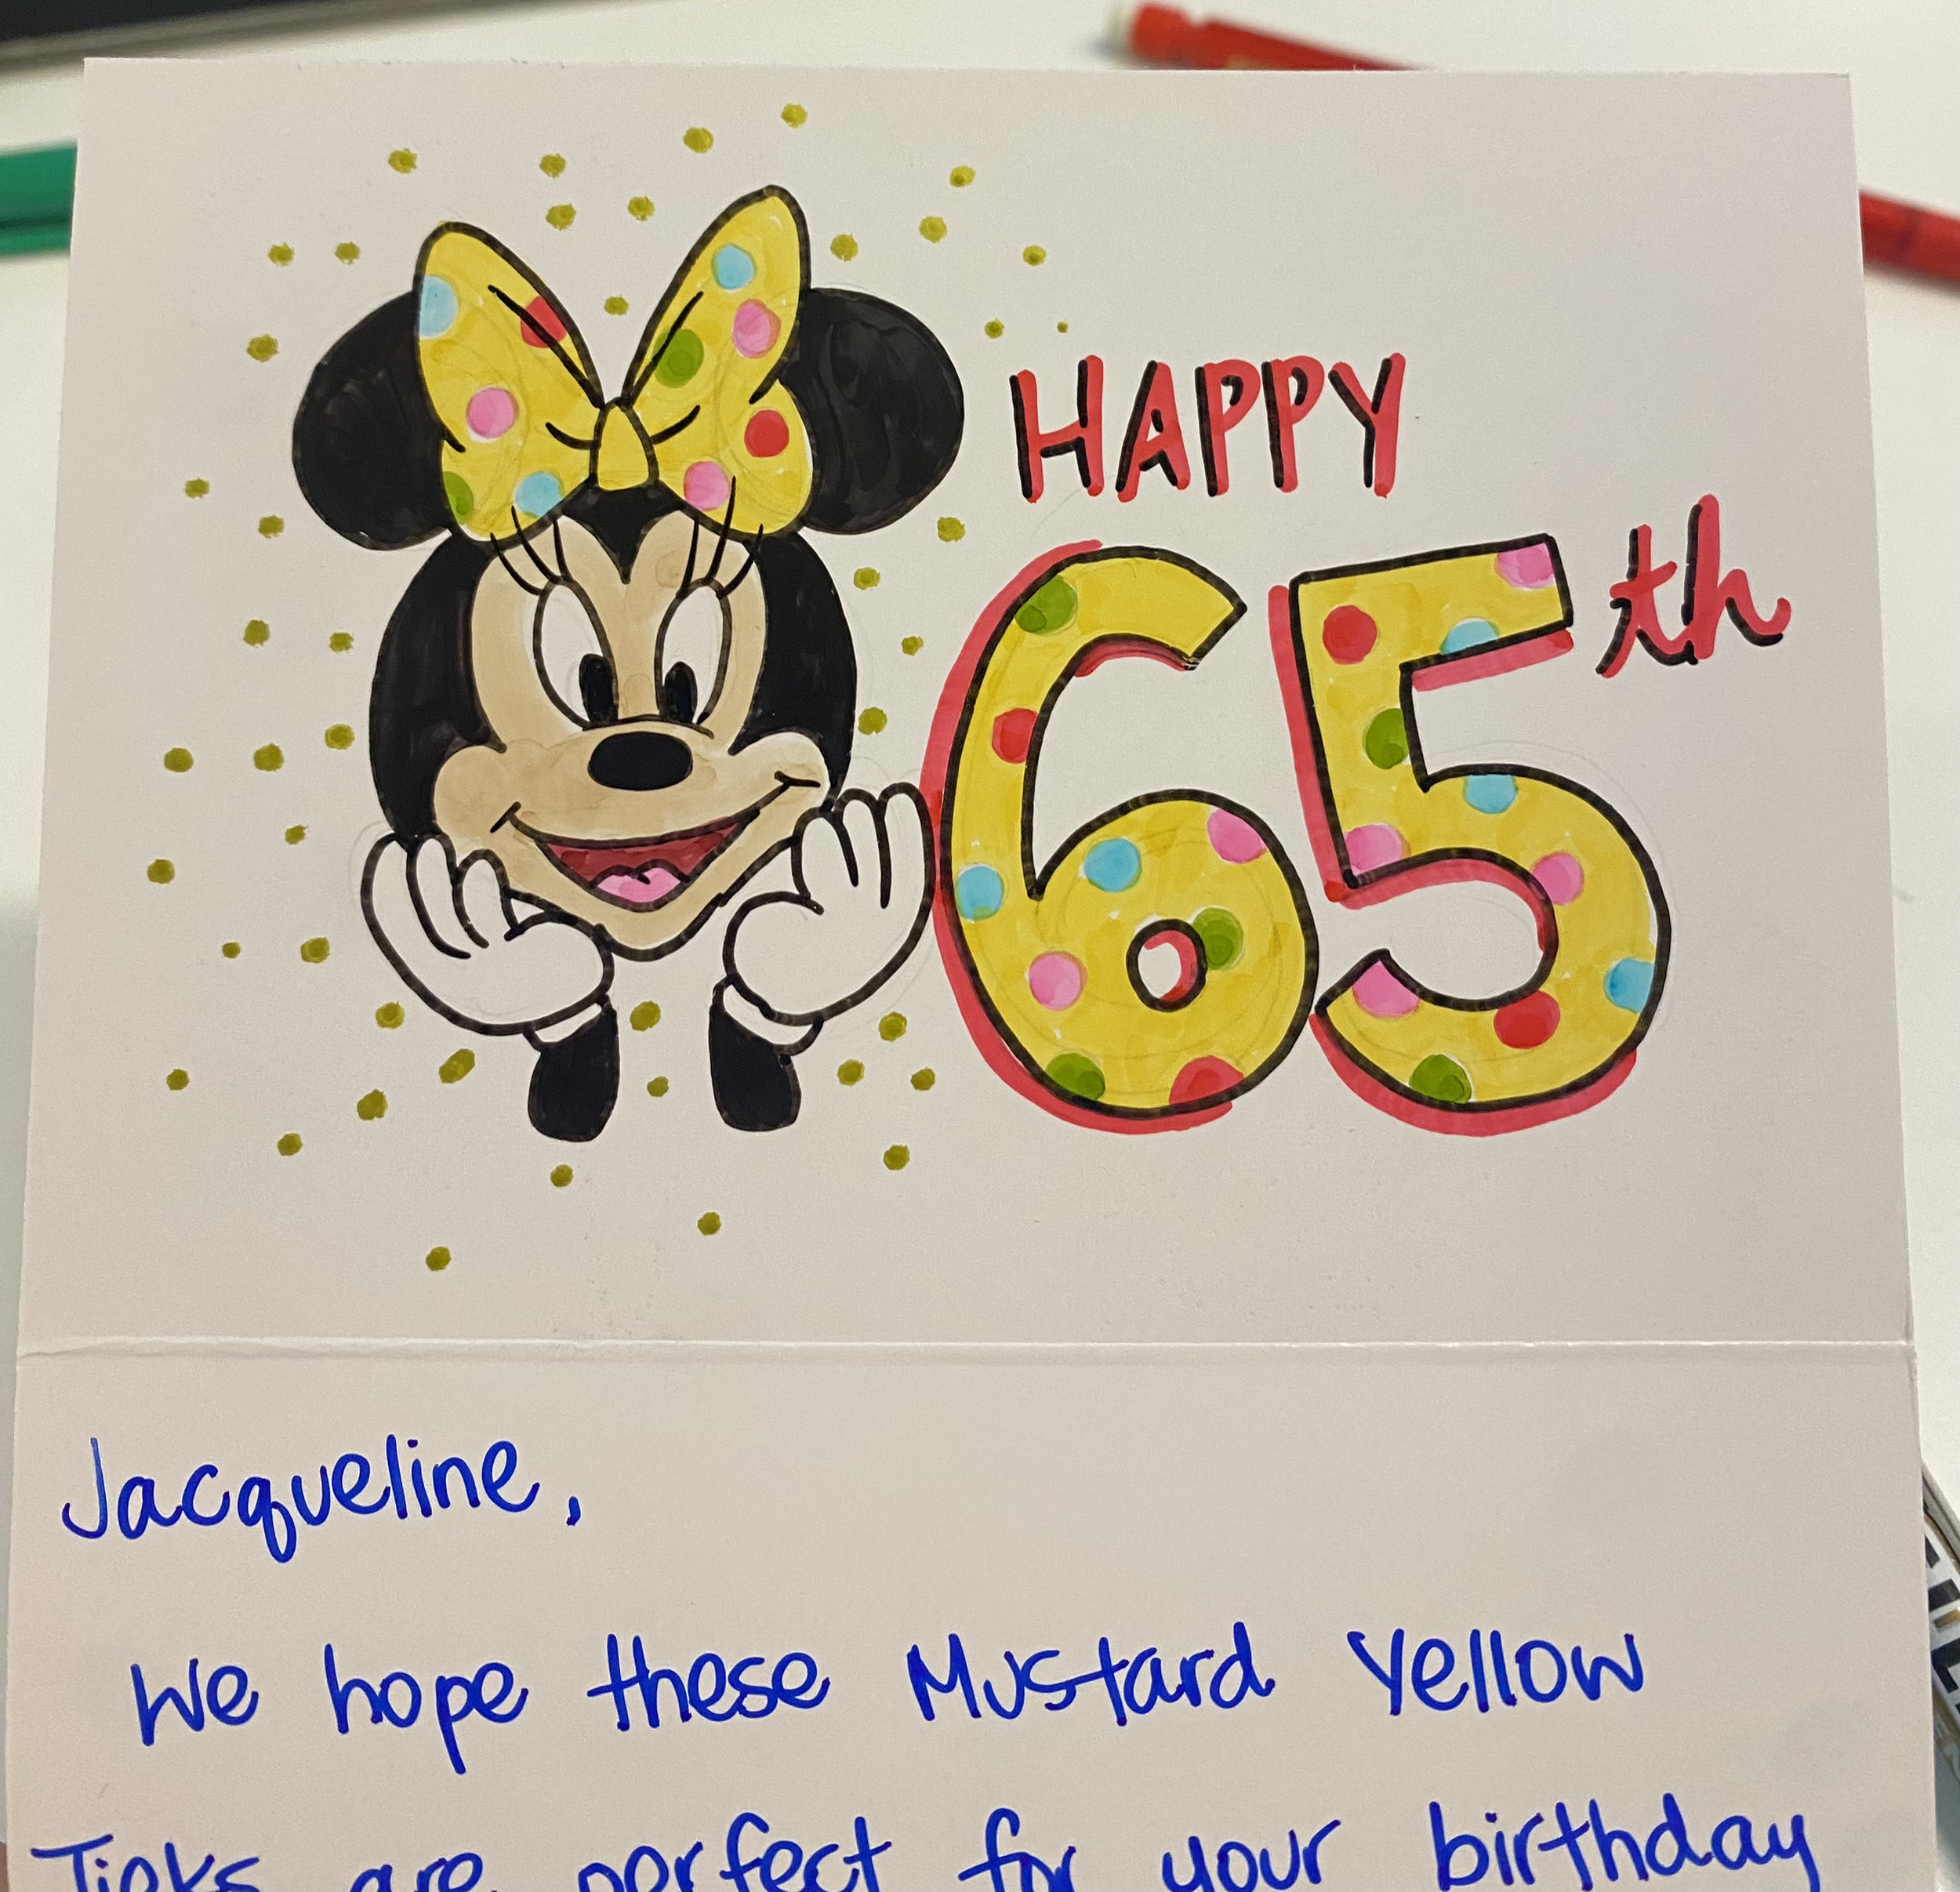 HAPPY
65th
Jacqueline,
We hope these Mustard Yellow
are perfect for your birthday